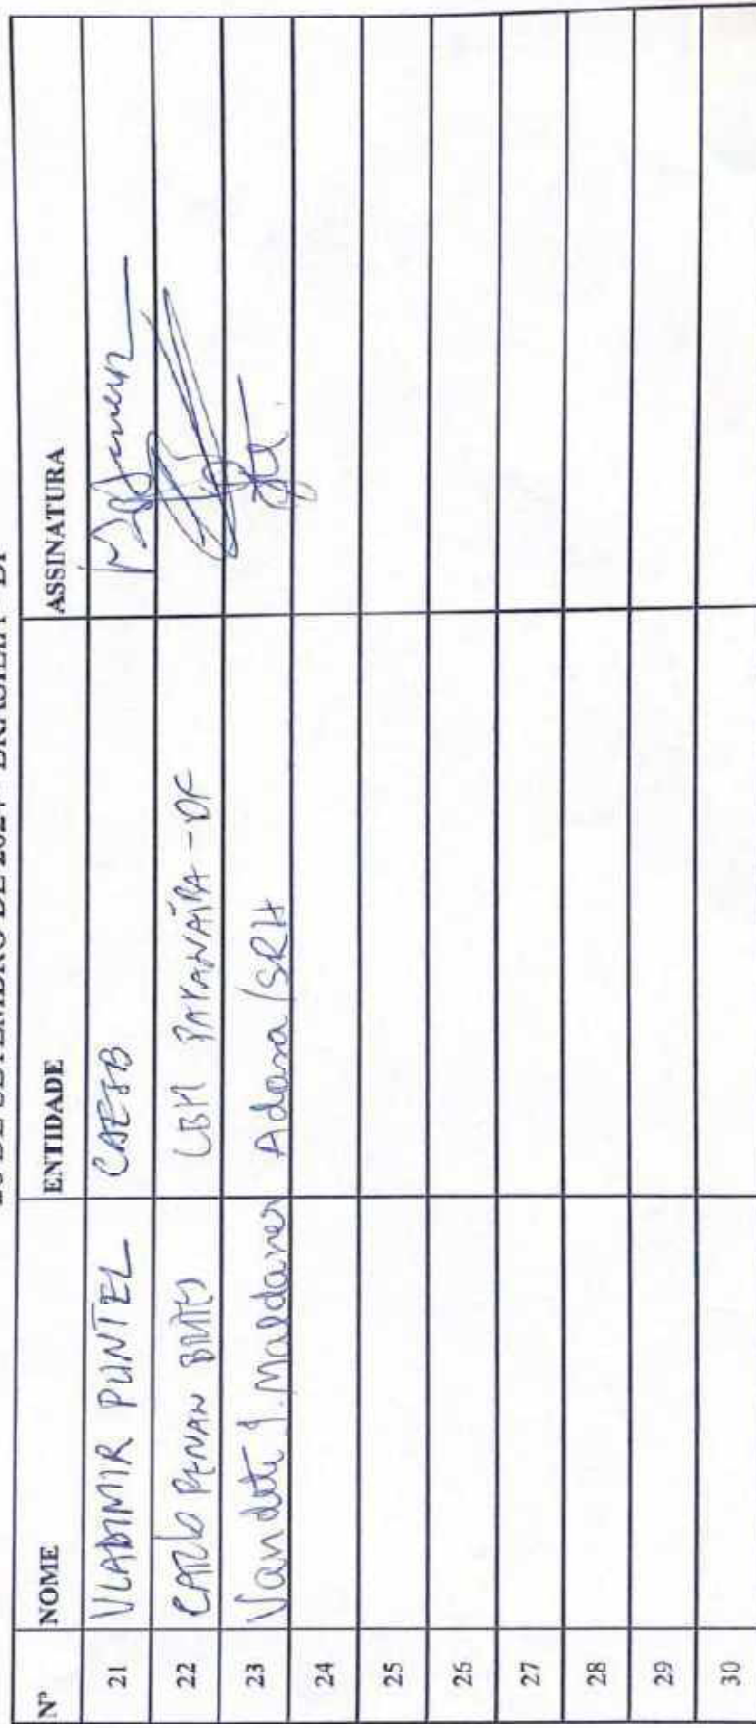 DE SETEMBRO DE 2024 - BRASÍLIA - DF
Nº NOME ENTIDADE ASSINATURA
21 VLADIMIR PUNTEL CAESB
22 CARLO RENAN BRITES CBH PARANAÍBA-DF
23 Vandete I. Maldaner Adasa/SRH
24
25
26
27
28
29
30